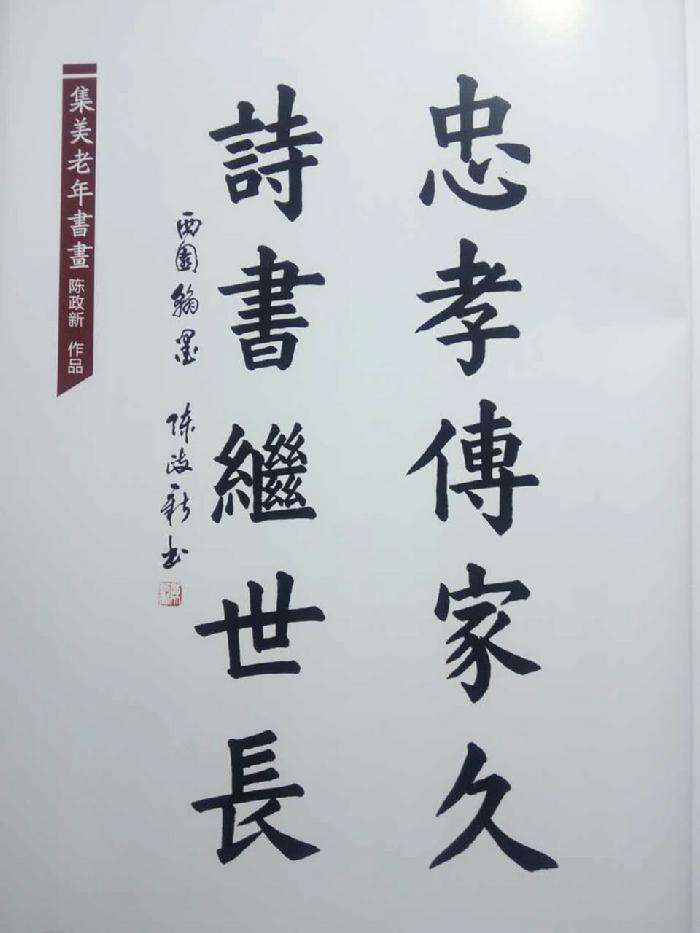 忠孝傳家久
詩書繼世長
西園翰墨 陈政新书
集美老年書畫 陈政新 作品